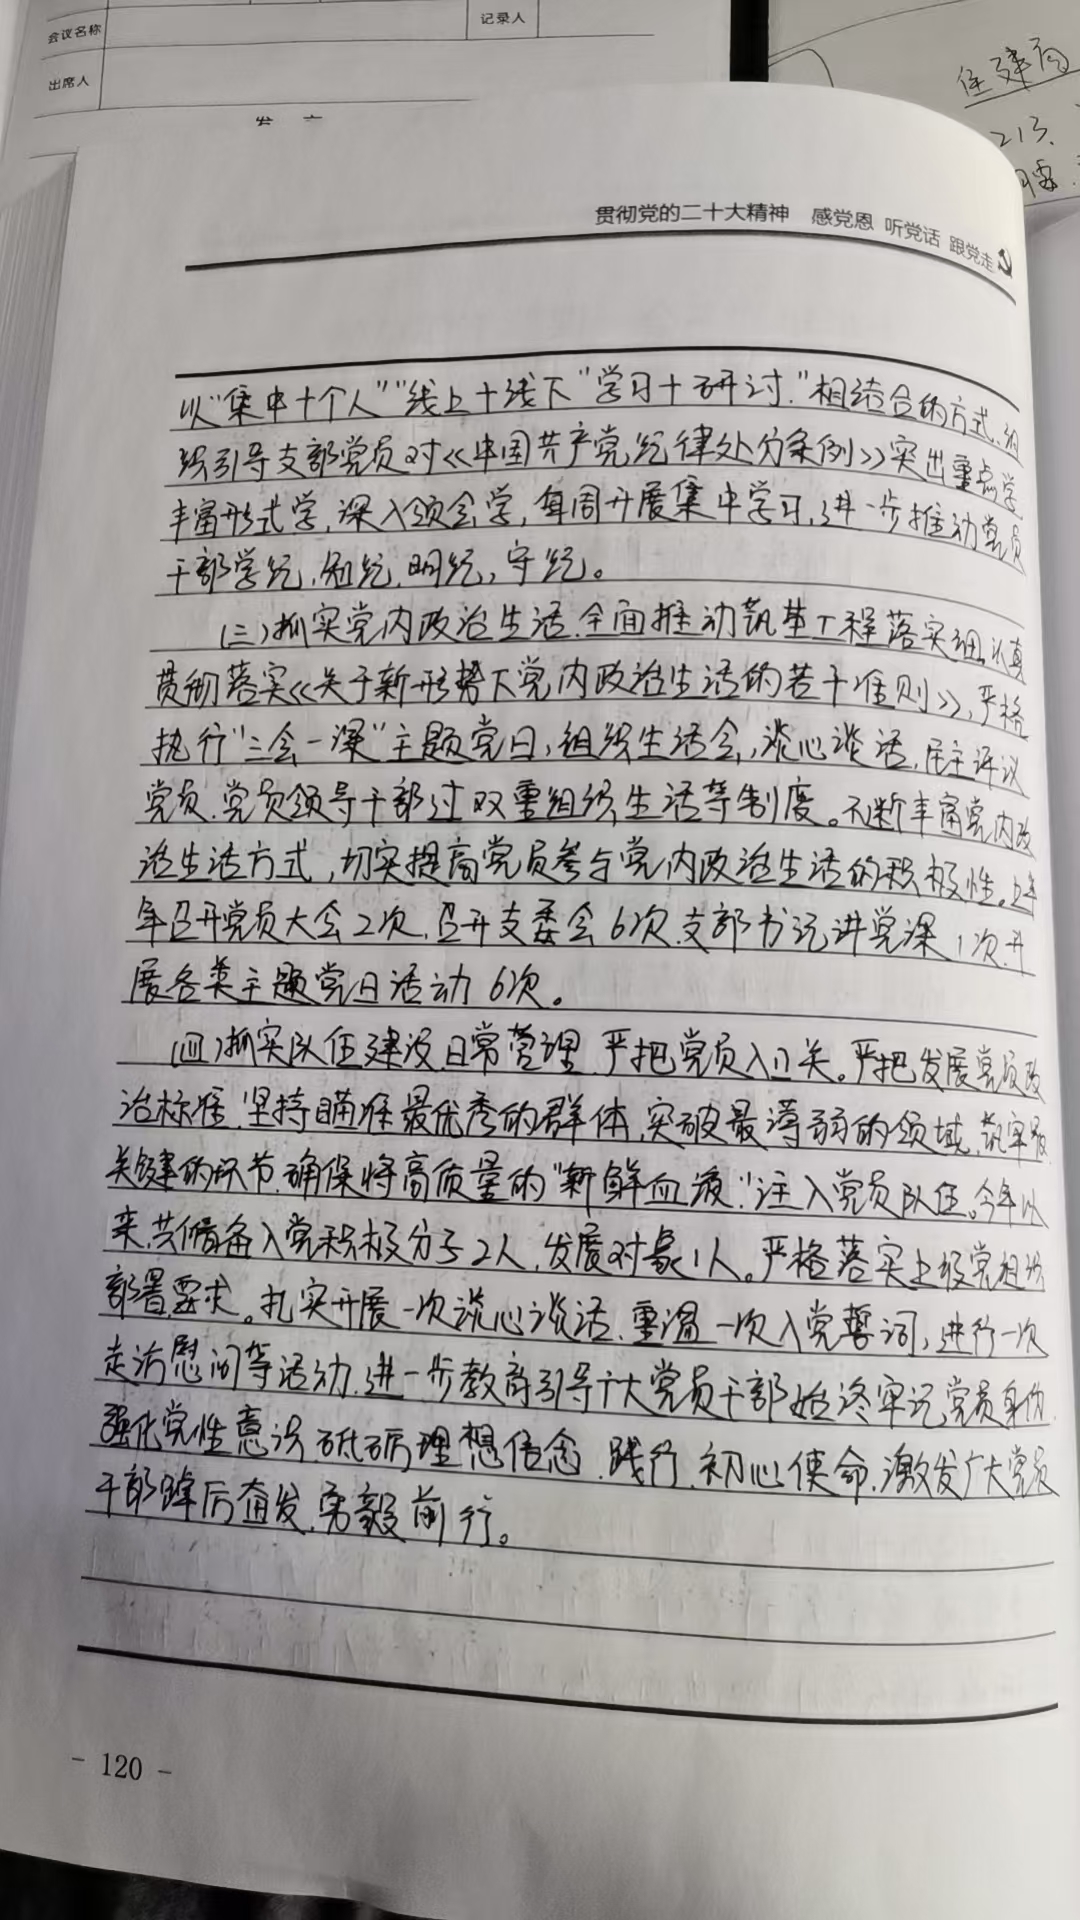 会议名称
记录人
出席人
住建局
213、
贯彻党的二十大精神 感党恩 听党话 跟党走
以“集中+个人”“线上+线下”“学习+研讨”相结合的方式,组
织引导支部党员对《中国共产党纪律处分条例》突出重点学,
丰富形式学,深入领会学,每周开展集中学习,进一步推动党员
干部学纪,知纪,明纪,守纪。
(三)抓实党内政治生活,全面推动筑基工程落实细。认真
贯彻落实《关于新形势下党内政治生活的若干准则》,严格
执行“三会一课”主题党日,组织生活会,谈心谈话,民主评议
党员,党员领导干部过双重组织生活等制度。不断丰富党内政
治生活方式,切实提高党员参与党内政治生活的积极性。上半
年召开党员大会2次,召开支委会6次,支部书记讲党课1次,开
展各类主题党日活动6次。
(四)抓实队伍建设日常管理,严把党员入口关。严把发展党员政
治标准,坚持瞄准最优秀的群体,突破最薄弱的领域,筑牢最
关键的环节,确保将高质量的“新鲜血液”注入党员队伍。今年以
来,共储备入党积极分子2人,发展对象1人。严格落实上级党组织
部署要求。扎实开展一次谈心谈话,重温一次入党誓词,进行一次
走访慰问等活动,进一步教育引导广大党员干部始终牢记党员身份,
强化党性意识,砥砺理想信念,践行初心使命,激发广大党员
干部踔厉奋发,勇毅前行。
- 120 -